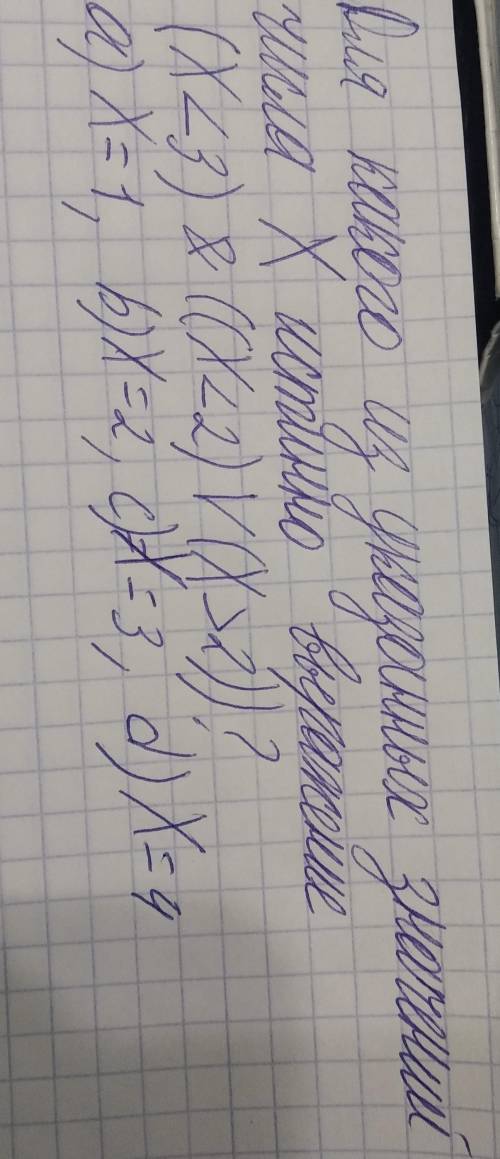 Для какого из указанных значений
числа X истинно выражение
(X<3) & ((X<2) V (X>2))?
a) X=1, b) X=2, c) X=3, d) X=4